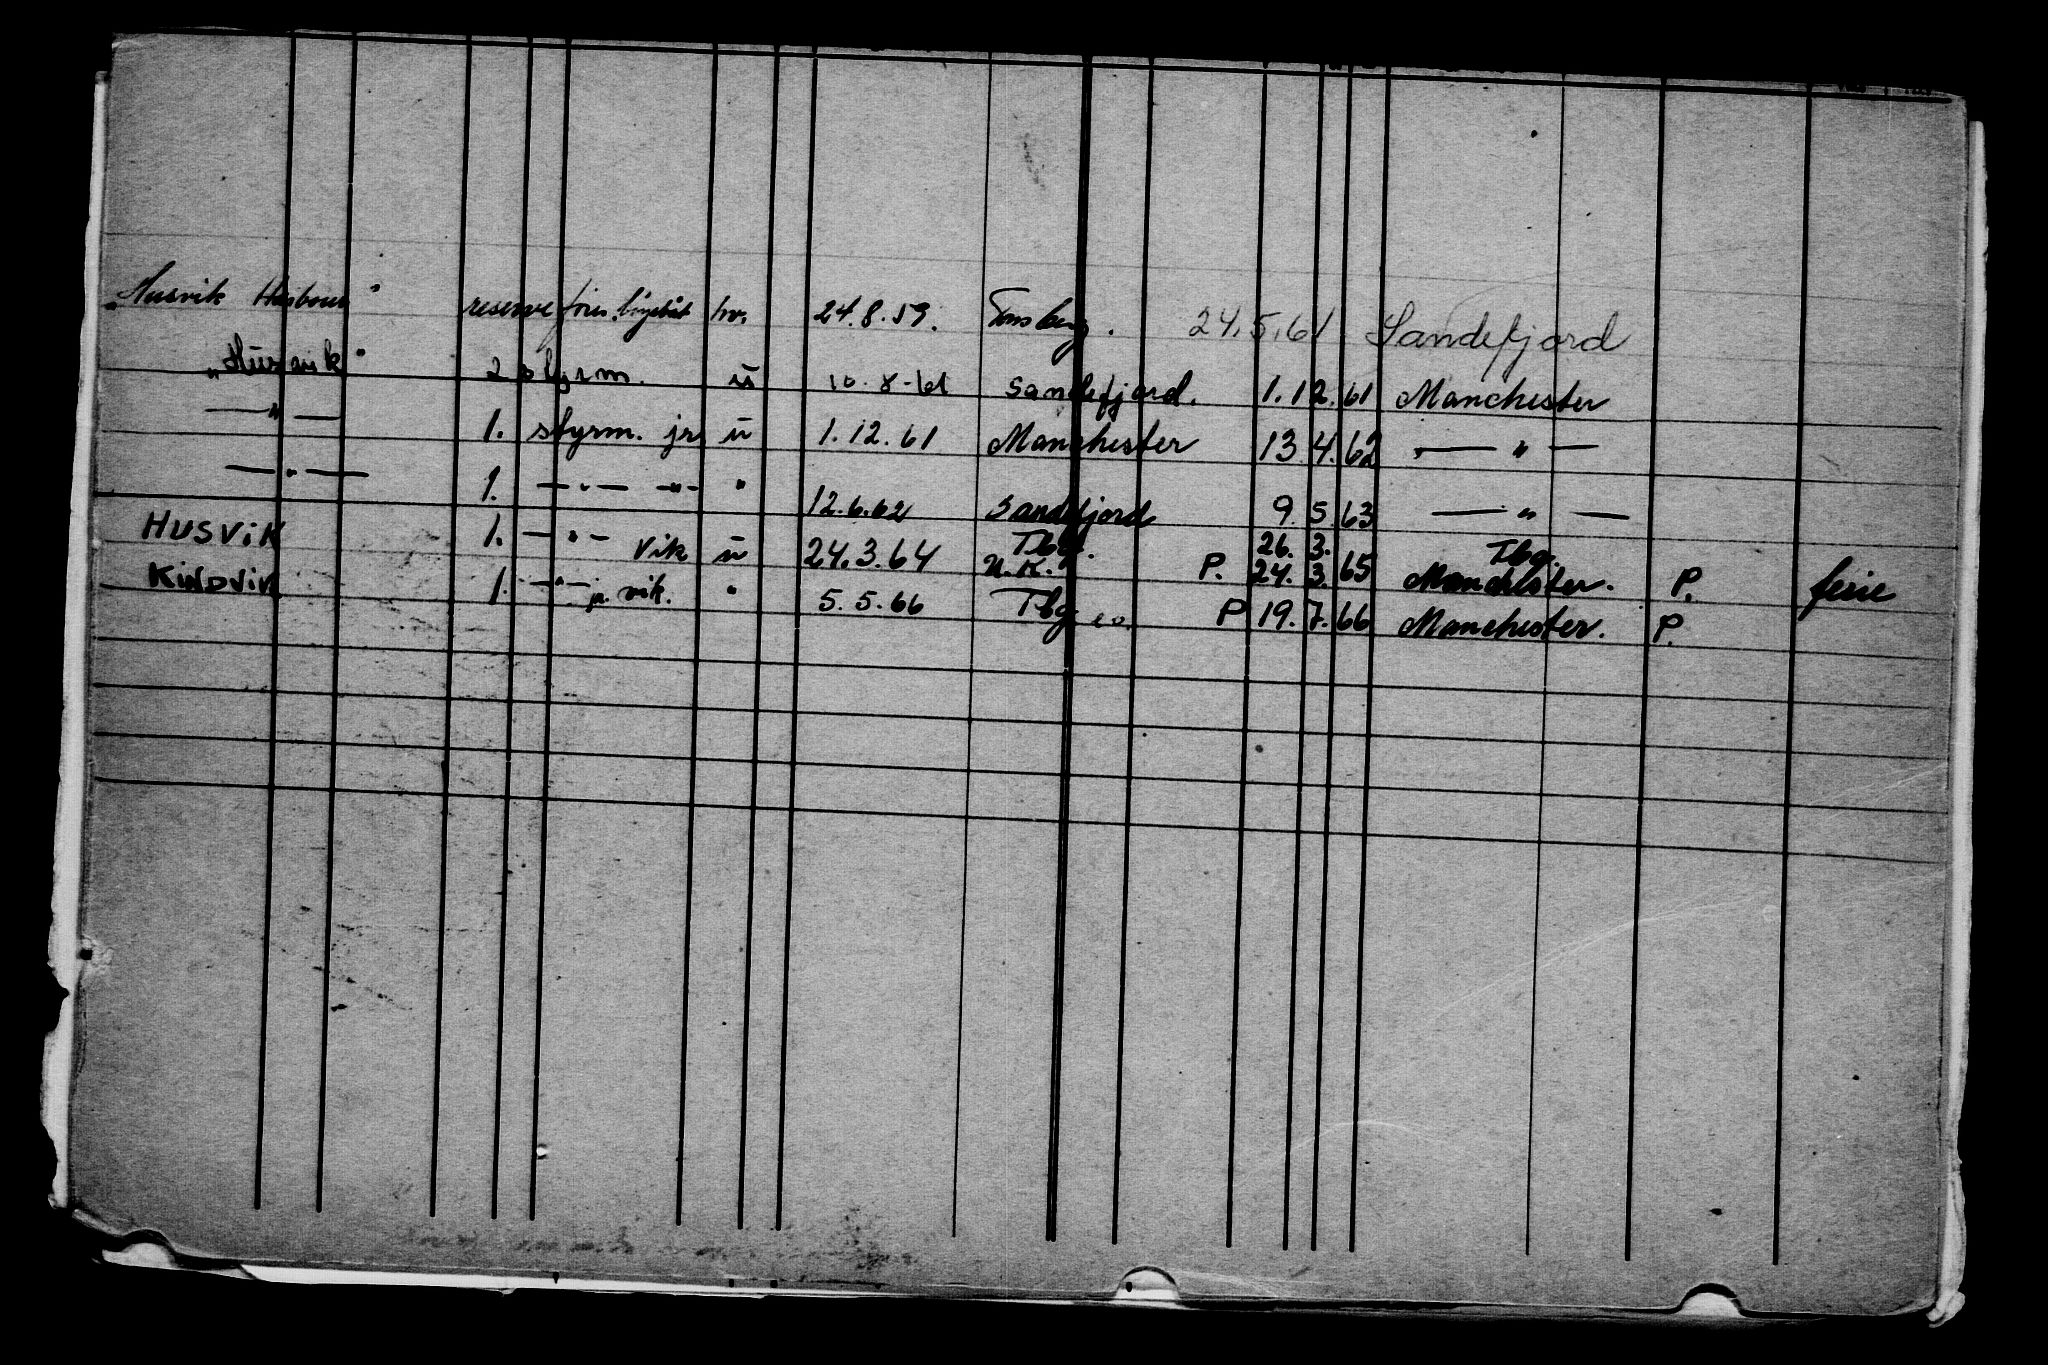 „Husvik Harbour" reserve förer. bøyebåt hv. 24.8.59. Tønsberg. 24.5.61 Sandefjord
„Husvik" 2 styrm. u 10-8-61 Sandefjord. 1.12.61 Manchester
— " — 1. styrm. jr. u 1.12.61 Manchester 13.4.62 — " —
— " — 1. — " — — " — " 12.6.62 Sandefjord 9.5.63 — " —
HUSVIK 1. — " — Vik u 24.3.64 Tbg. U.K. P. 26.3. 24.3.65 Tbg. Manchester. P. ferie
KINDVIK 1. — " — jr. vik. " 5.5.66 Tbg P 19.7.66 Manchester. P.